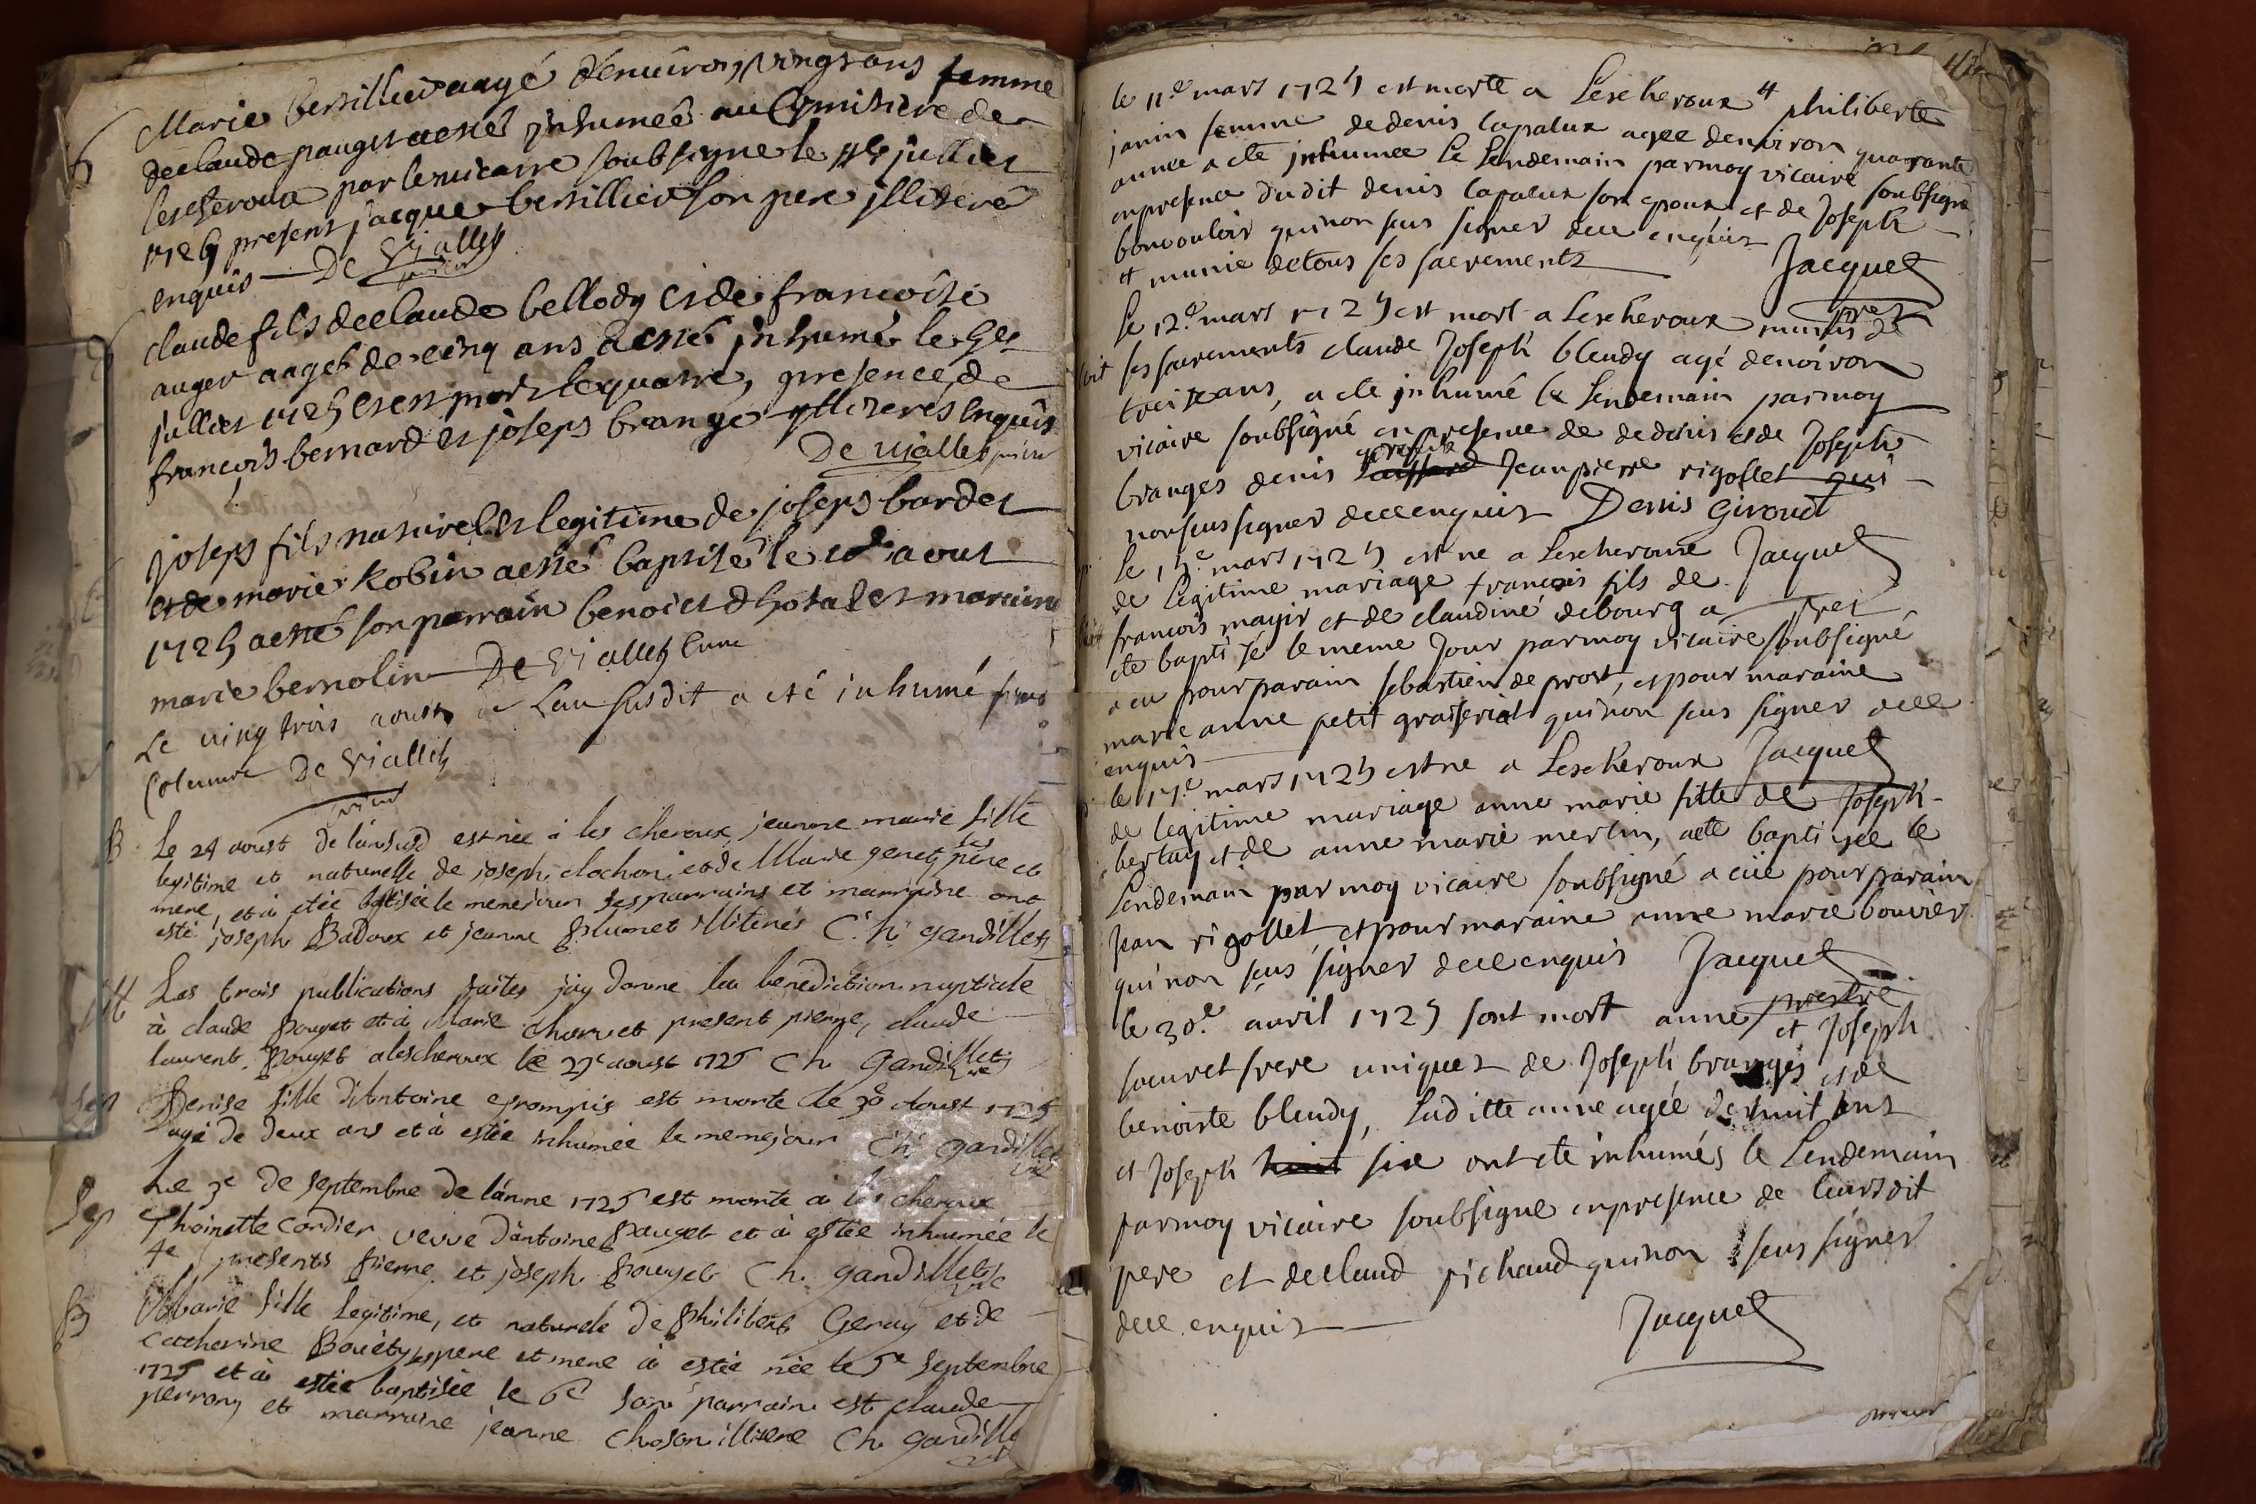 Marie bersillier aagé d'enuiron vingt ans femme
declaude pauget aesté jnhumeé au Cymistere de
lescheroux par le vicaire soubsigne le juillet
1725 present jacque bersillier son pere jllitere
enquis De Viallet
claude fils declaude bellody et de francoise
auger aagét de cinq ans aesté jnhumé le 5e
juillet 1725 et est mort lequatre, presence, de
francois bernard et joseps brange yllizeres enquis
De viallet
joseps fils naturel et legitime de joseps bardet
et de marie Robin aesté baptisé le aout
1725 aesté son parrain benoict et maraine
marie bernolin De Viallet Cure
Le ving trois aoust de Lan susdit a eté inhumé
Columne De Viallet
B Le 24 aoust de l'ansusd est née à les cheroux jeanne marie fille
legitime et naturelle de joseph clochon et de Marie genet ses pere et
mere, et à etée batisée le meme jour ses parrains et marraine ont
esté joseph Badoux et jeanne plumet illiterés C. h. gandillet
M Les trois publications faites jay donne la benediction nuptiale
à claude pouget et à Marie charvet present pierre, claude
laurent pouget a lescheroux le 27e aoust 1725 Ch. Gandillet
Sep Denise fille d'Antoine est morte le 30 Aoust 1725
agé de deux ans et à estée inhumée le meme jour Ch. gandillet
Sep Le 3e de septembre de l'anne 1725 est morte à les cheroux
Thoinette cordier veuve d'antoine pauget et à estée inhumée le
4e presents pierre et joseph pouget Ch. gandillet
B Marie fille legitime, et naturele de philibert Geray et de
Catherine Bouéty ses pere et mere à estée née le 5e septembre
1725 et à estée baptisée le 6e son parrain est claude
perron et marraine jeanne illitere Ch. gandillet
le 11.e mars 1725 est morte a Lescheroux philiberte
janin femme de denis lapalux agee denviron quarante
annee a ete jnhumee le Lendemain parmoy vicaire soubsigné
enpresence dudit denis lapalux son epoux et de Joseph
bonvouloir quinon sceus signer dece enquis
et munie detous ses sacrements Jacquet
pret
Le 12.e mars 1725 est mort a Lescheroux munis de
ses sacrements claude Joseph bleudy agé denviron
treize ans, a ete jnhumé le Lendemain parmoy
vicaire soubsigné enpresence de dedenis et de Joseph
branges denis giroud Jeanpierre rigollet qui
nonsceus signer dece enquis Denis Giroud
Le mars 1725 est ne a Lescheroux Jacquet
de legitime mariage francois fils de pret
francois mayir et de claudine debourg a
ete baptisé le meme Jour parmoy vicaire soubsigné
a eu pour parain sebastien de prost, et pour maraine
marie anne petit quinon sceus signer dece
enquis
le 17.e mars 1725 est ne a Lescheroux Jacquet
de legitime mariage anne marie fille de Joseph
bertay et de anne marie merlin, aete baptisée le
Lendemain par moy vicaire soubsigné a eüe pour parain
Jean rigollet, et pour maraine anne marie bouvier
quinon sceus signer dece enquis Jacquet
prestre
le 30.e avril 1725 sont mort anne et Joseph
soeur et frere uniques de Joseph branges et de
benoiste bleudy, Laditte anne agée de huit ans
et Joseph huit six ont ete inhumés le Lendemain
parmoy vicaire soubsigne enpresence de leursdit
pere et declaud pichaud quinon sceus signer
dece enquis
Jacquet